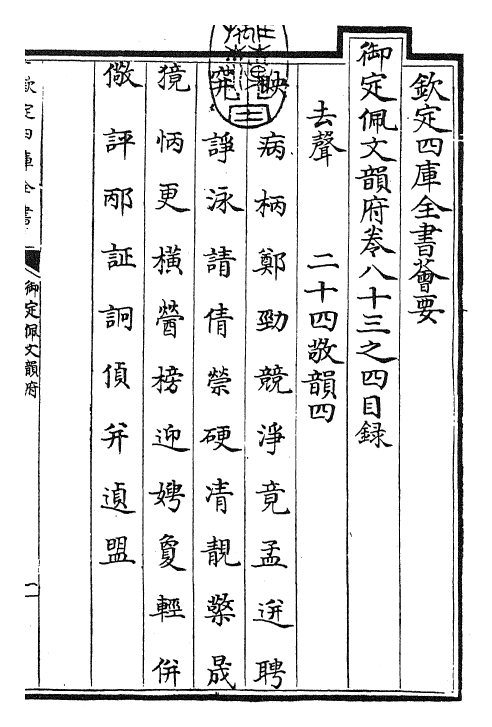 欽定四庫全書薈要
御定佩文韻府卷八十三之四目錄
去聲　二十四敬韻四
映病柄鄭勁競淨竟孟迸聘
穽諍泳請倩禜硬凊靚檠晟
獍怲更橫䁝榜迎娉敻輕併
儆評邴証詗偵并遉盟
欽定四庫全書
御定佩文韻府
一